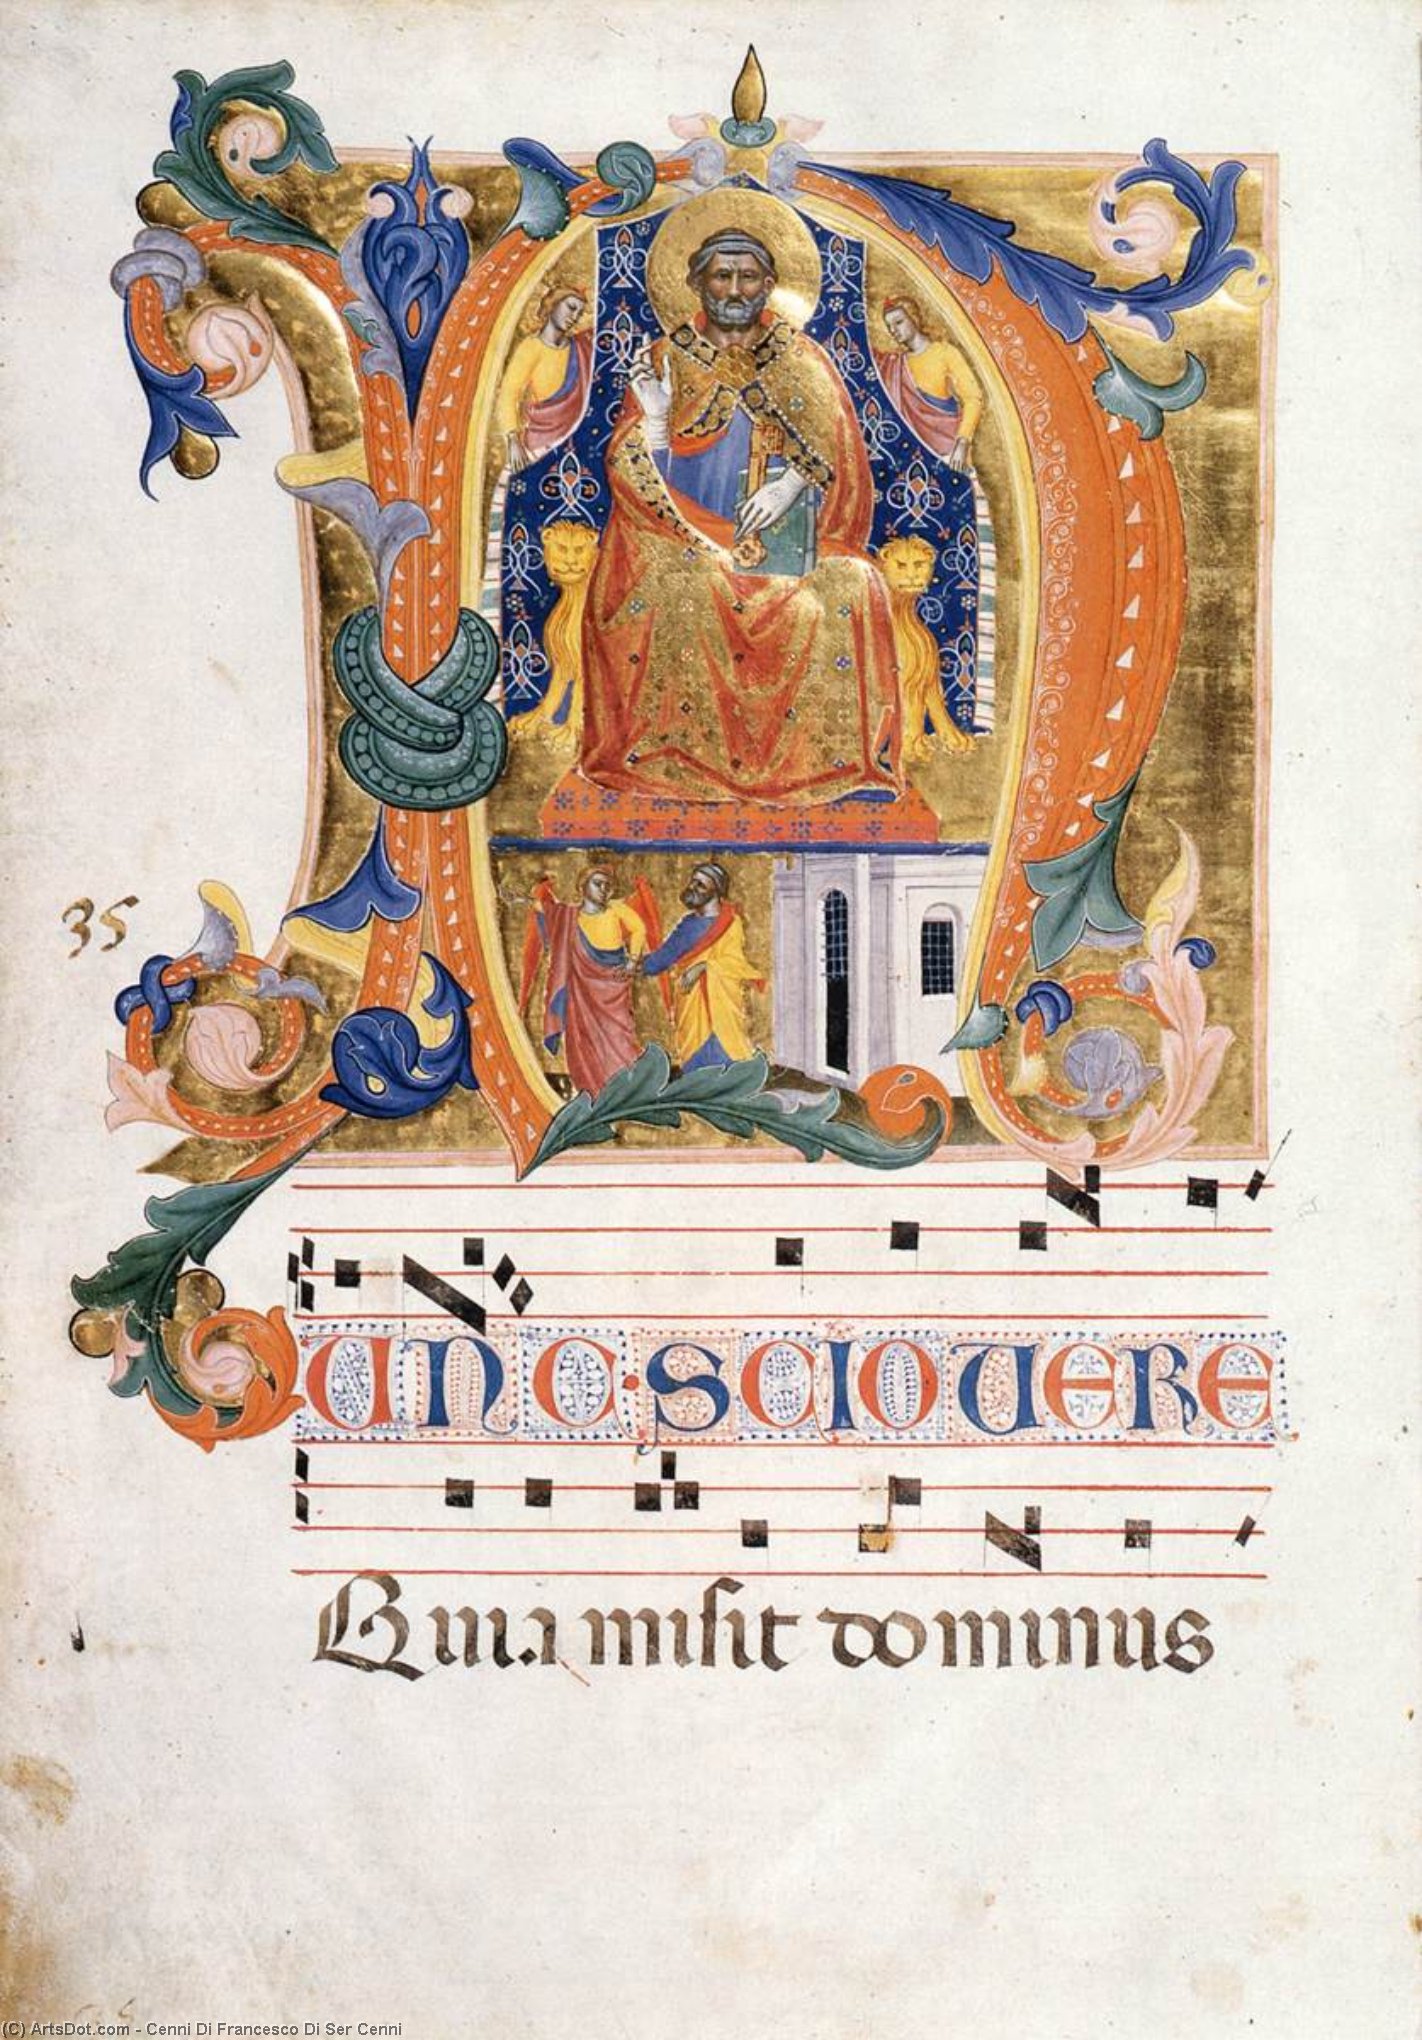 35
N
UNC·SCIO VERE
Quia misit dominus
(C) ArtsDot.com - Cenni Di Francesco Di Ser Cenni